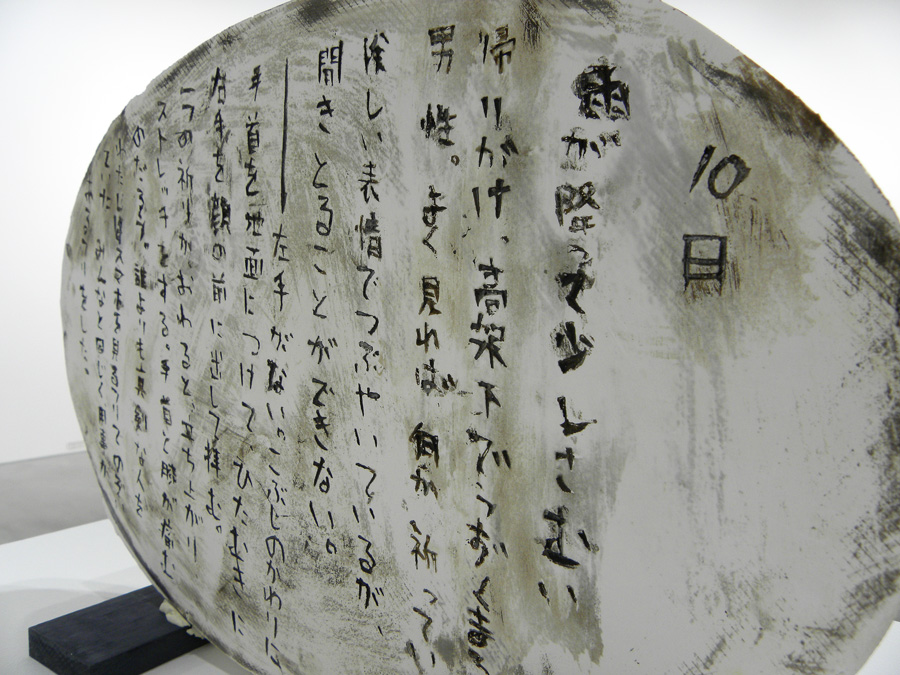 10日
雨が降って少しさむい
帰りがけ、高架下でうずくまる
男性。よく見れば、何か祈ってい
険しい表情でつぶやいているが、
聞きとることができない。
――左手がない。こぶしのかわりに
手首を地面につけて ひたむきに
右手を額の前に出して拝む。
一つの祈りがおわると立ちあがり
ストレッチをする。手首と膝が痛む
のだろう。誰よりも真剣な人を